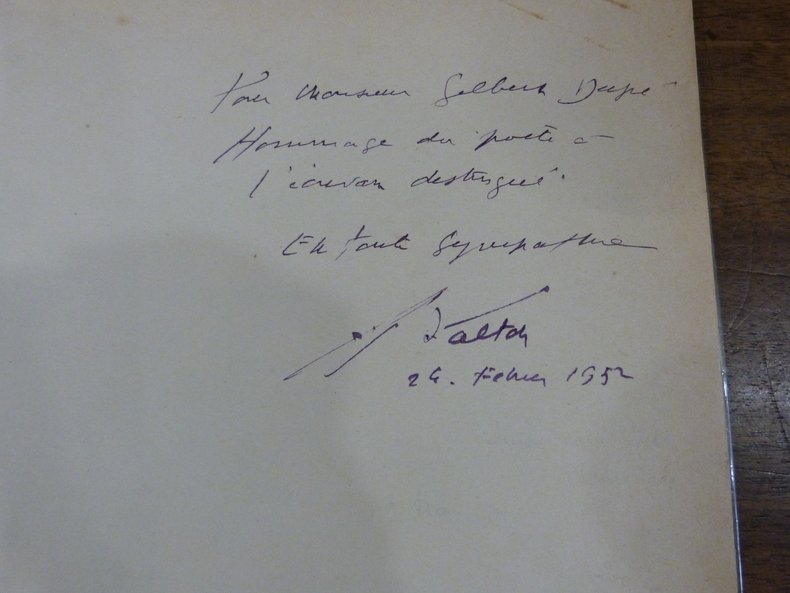 Pour Monsieur Gilbert Dupé
Hommage du poète à
l'écrivain distingué.
En toute sympathie
24. Février 1952